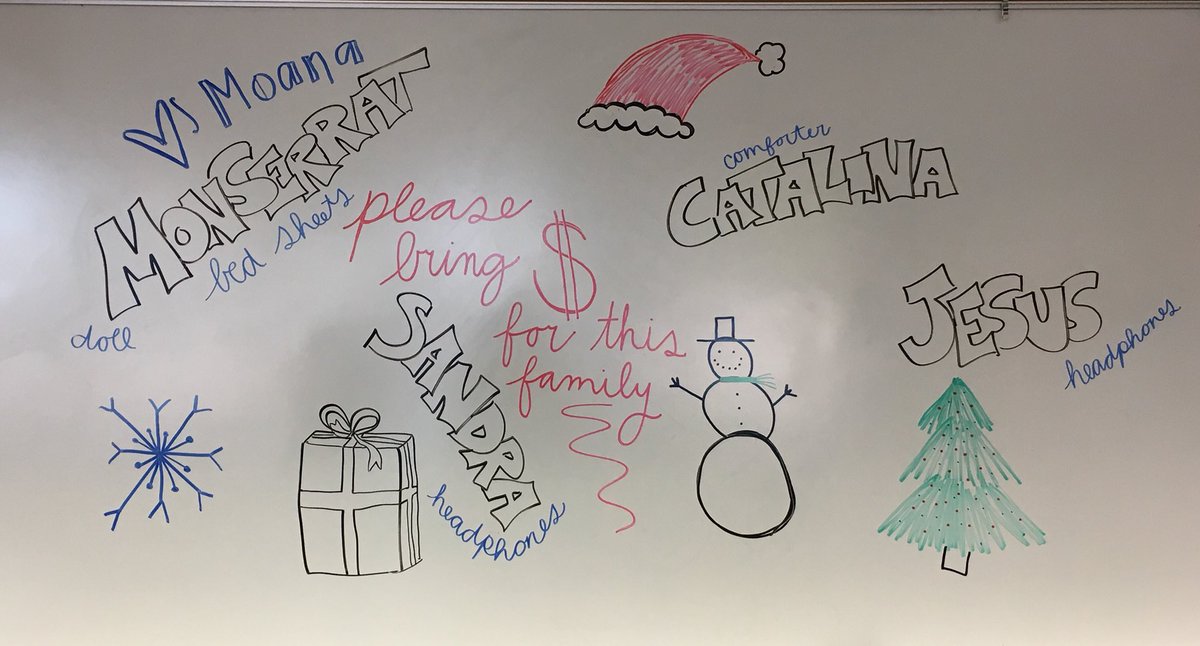 ♡s Moana
MONSERRAT
bed sheets
doll
please
bring $
for this
family
SANDRA
headphones
comforter
CATALINA
JESUS
headphones